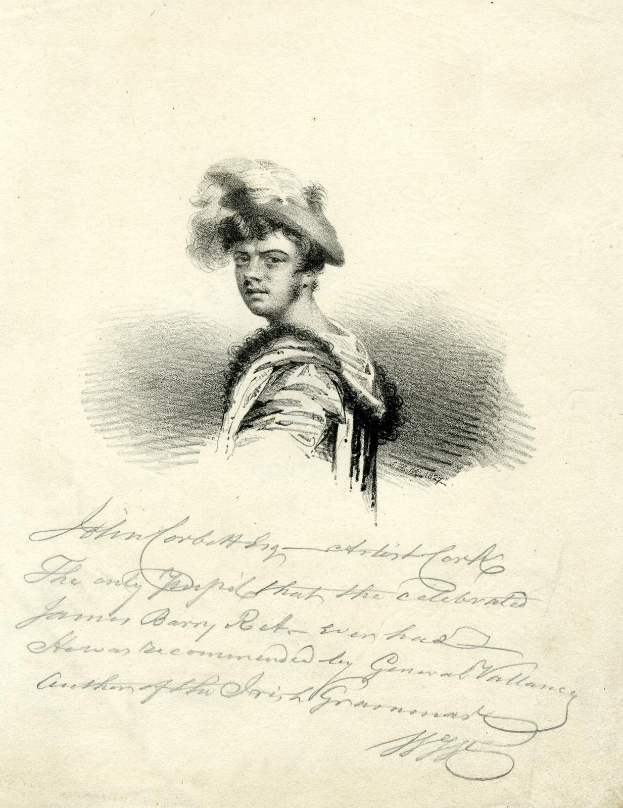 John Corbett Esq — Artist Cork
The only Pupil that the celebrated
James Barry R.A. — ever had
He was recommended by General Vallancy
Author of the Irish Grammar